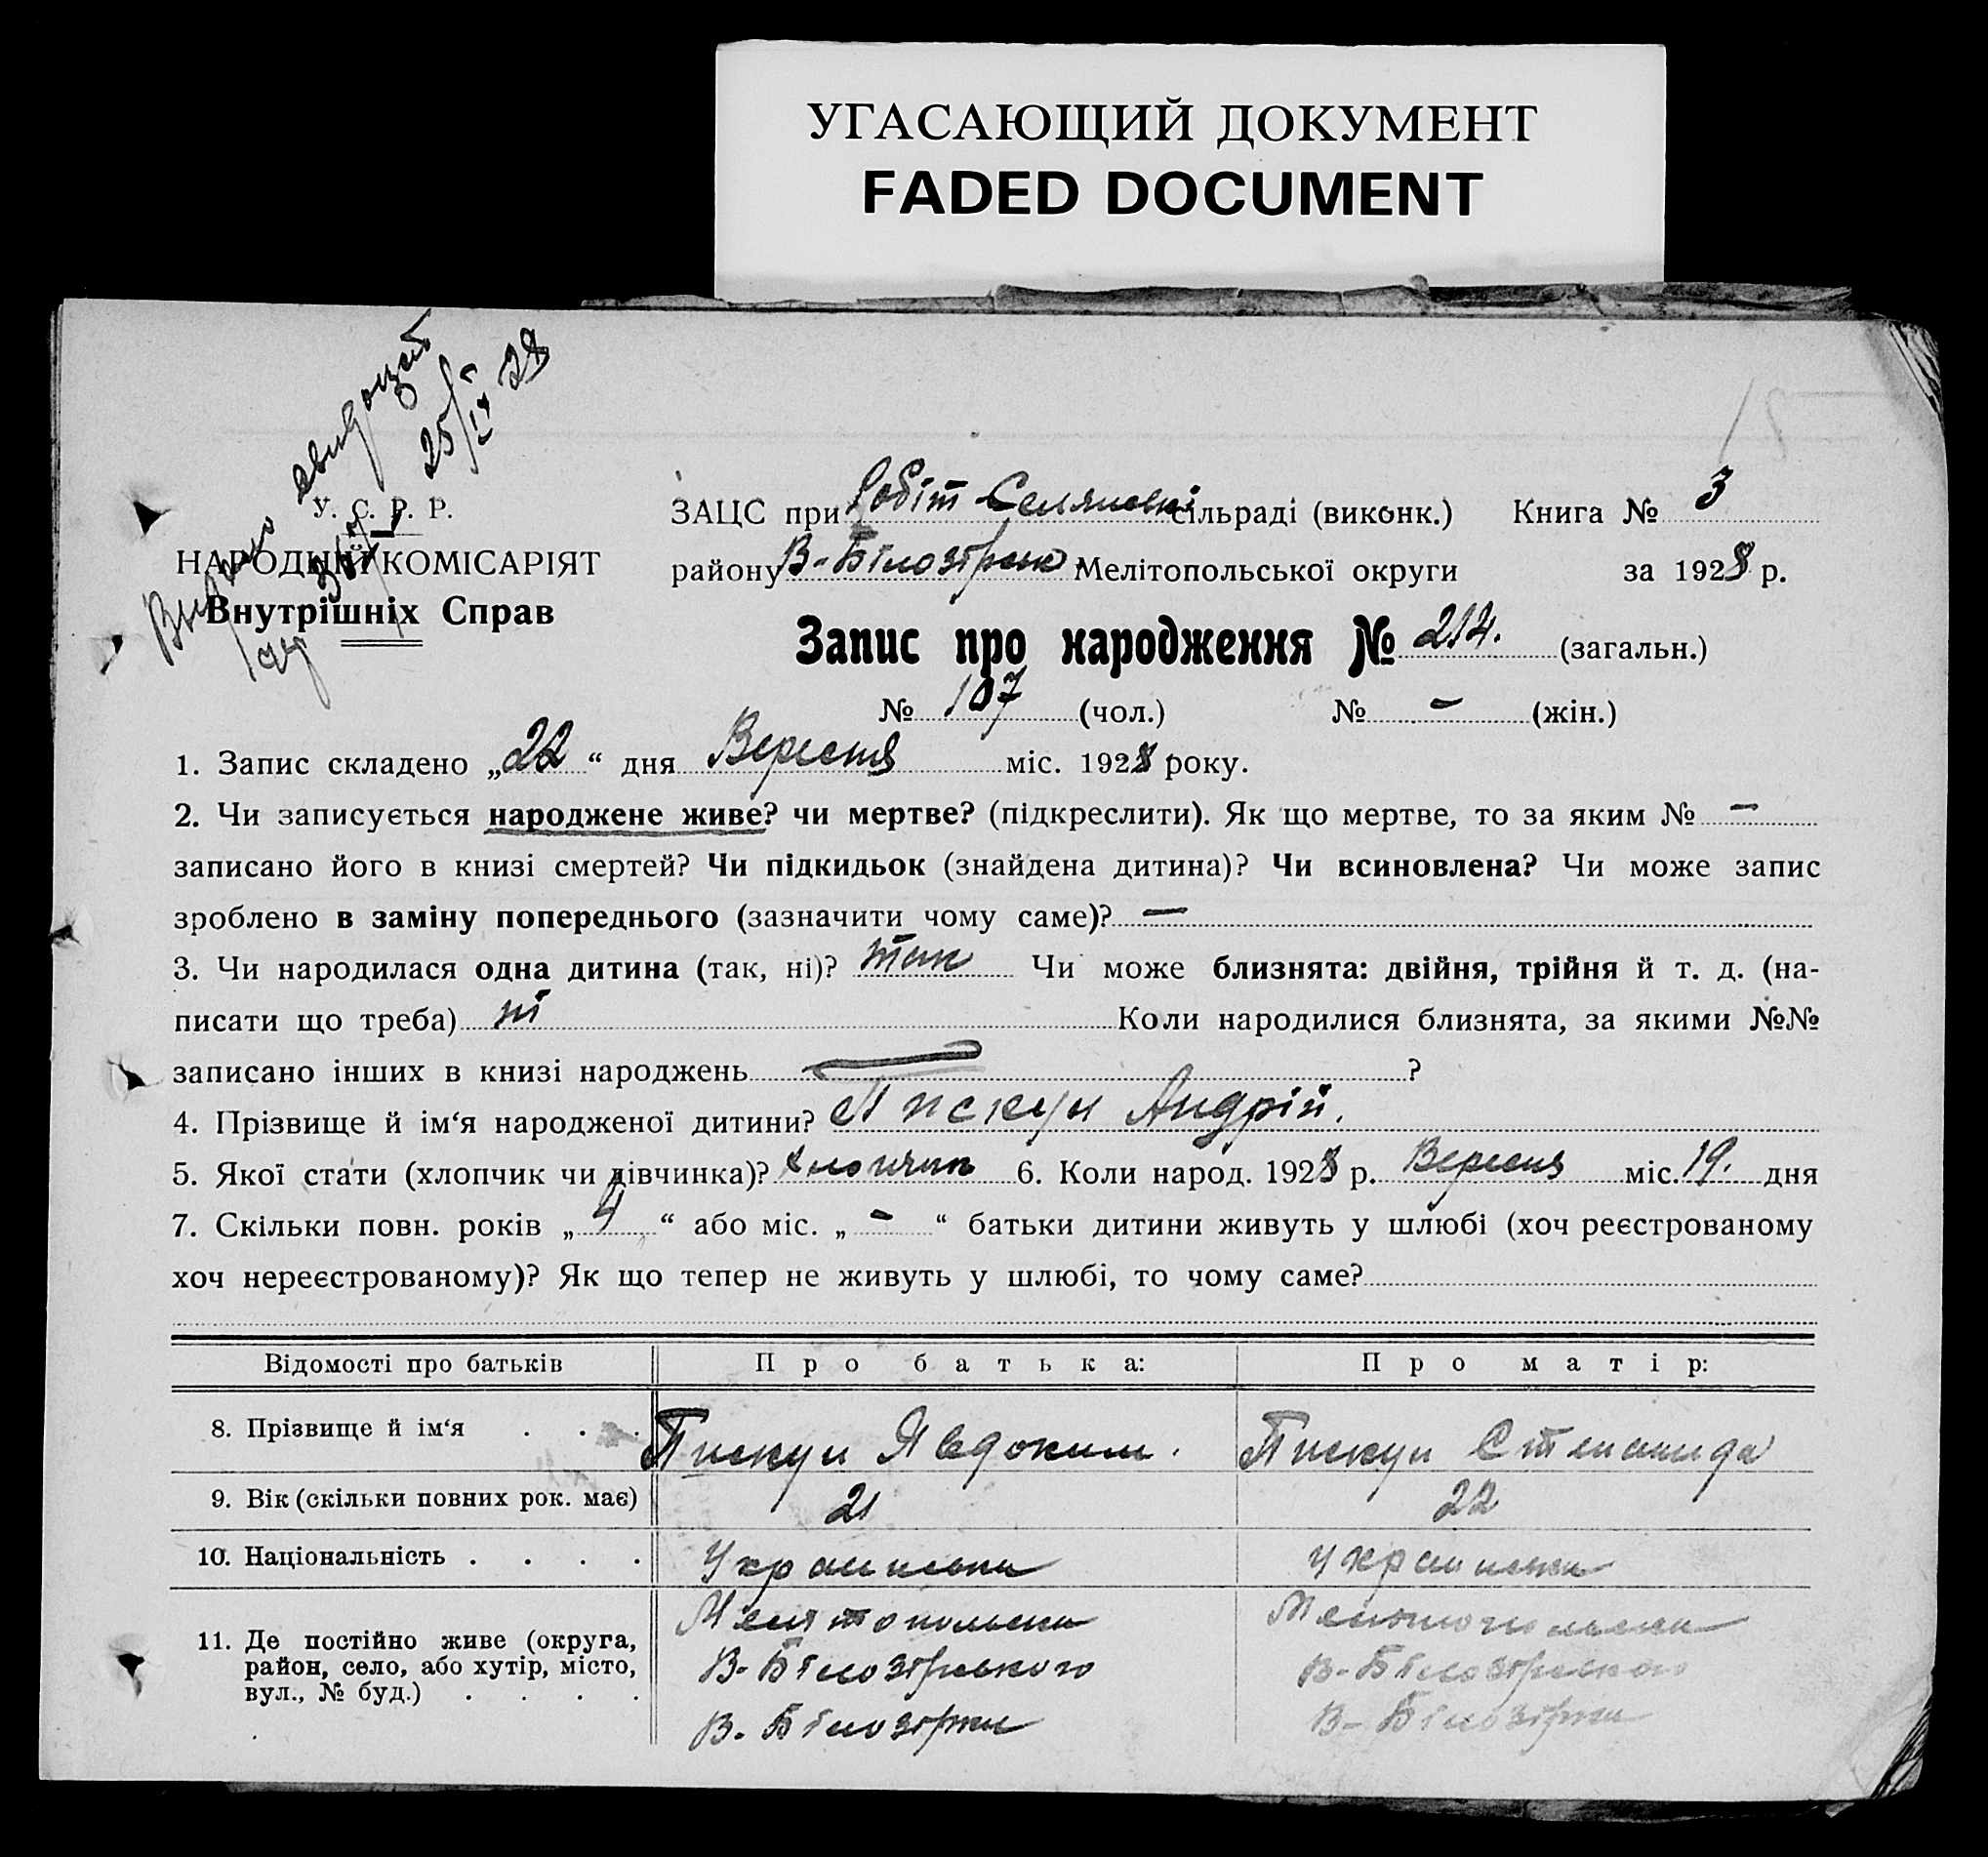 УГАСАЮЩИЙ ДОКУМЕНТ
FADED DOCUMENT
25/IX 28
У. С. Р. Р.
НАРОДНІЙ КОМІСАРІЯТ
Внутрішніх Справ
ЗАЦС при Робіт Селянські сільраді (виконк.) Книга № 3
району В-Білозірськ. Мелітопольської округи за 1928 р.
Запис про народження № 214. (загальн.)
№ 107 (чол.) № – (жін.)
1. Запис складено „22“ дня Вересня міс. 1928 року.
2. Чи записується народжене живе? чи мертве? (підкреслити). Як що мертве, то за яким № –
записано його в книзі смертей? Чи підкидьок (знайдена дитина)? Чи всиновлена? Чи може запис
зроблено в заміну попереднього (зазначити чому саме)? –
3. Чи народилася одна дитина (так, ні)? так Чи може близнята: двійня, трійня й т. д. (на-
писати що треба) ні Коли народилися близнята, за якими №№
записано інших в книзі народжень ?
4. Прізвище й ім‘я народженої дитини? Пискун Андрій.
5. Якої стати (хлопчик чи дівчинка)? хлопчик 6. Коли народ. 1928 р. Вересня міс. 19. дня
7. Скільки повн. років „4“ або міс. „–“ батьки дитини живуть у шлюбі (хоч реєстрованому
хоч нереєстрованому)? Як що тепер не живуть у шлюбі, то чому саме?
Відомості про батьків Про батька: Про матір:
8. Прізвище й ім‘я . . . Пискун Явдоким. Пискун Степанида
9. Вік (скільки повних рок. має) 21 22
10. Національність . . . . Українська Українка
11. Де постійно живе (округа, район, село, або хутір, місто, вул., № буд.) . . . .
Мелітопольська Мелітопольська
В-Білозірського В-Білозірського
В. Білозірка В-Білозірка